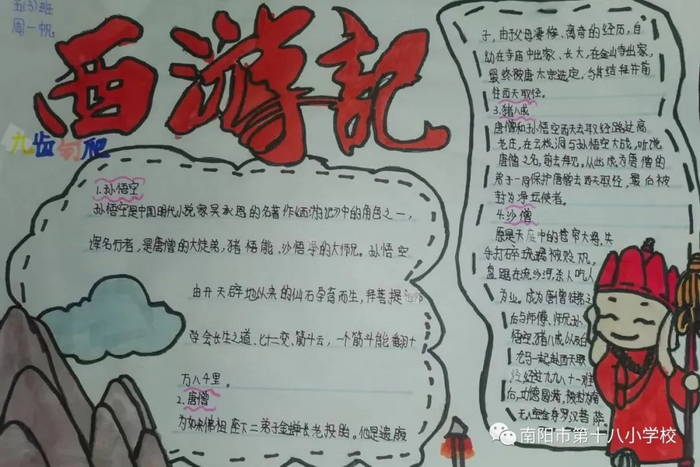 五(3)班
周一帆
西游記
九齿钉耙
1.孙悟空
孙悟空是中国明代小说家吴承恩的名著作《西游记》中的角色之一，
浑名行者，是唐僧的大徒弟，猪悟能、沙悟净的大师兄。孙悟空
由开天辟地以来的仙石孕育而生，拜菩提
学会长生之道、七十二变、筋斗云，一个筋斗能翻十
万八千里。
2.唐僧
为如来佛祖座下二弟子金蝉长老投胎，他是遗腹
子，由于父母凄惨、离奇的经历，自
幼在寺庙中出家、长大，在金山寺出家，
最终被唐太宗选定，与其结拜并前
往西天取经。
3.猪八戒
唐僧和孙悟空西去取经路过高
老庄，在云栈洞与孙悟空大战，听说
唐僧之名，前去拜见，从此成为唐僧的
弟子一同保护唐僧去西天取经，最后被
封为净坛使者。
4.沙僧
原是天庭中的卷帘大将，失
手打碎琉璃被贬下凡，
盘踞在流沙河，杀人吃人
为业，成为唐僧徒弟之
后与师傅、师兄孙
悟空、猪八戒以及白
龙马一起赴西天取
经，经过九九八十一难
后，功德圆满，被封为南
无八宝金身罗汉菩萨。
南阳市第十八小学校